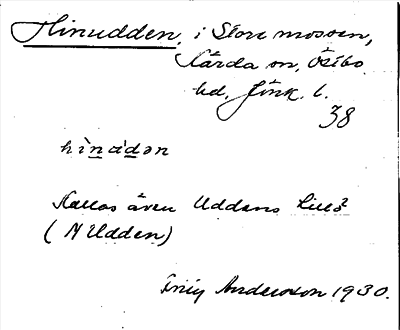 Hinudden, i Store mossen,
Kärda sn, Östbo
hd, Jönk. l.
38
hìn̲ɑ̀d̲ən
Kallas även Uddens
(N Udden)
Andersson 1930.